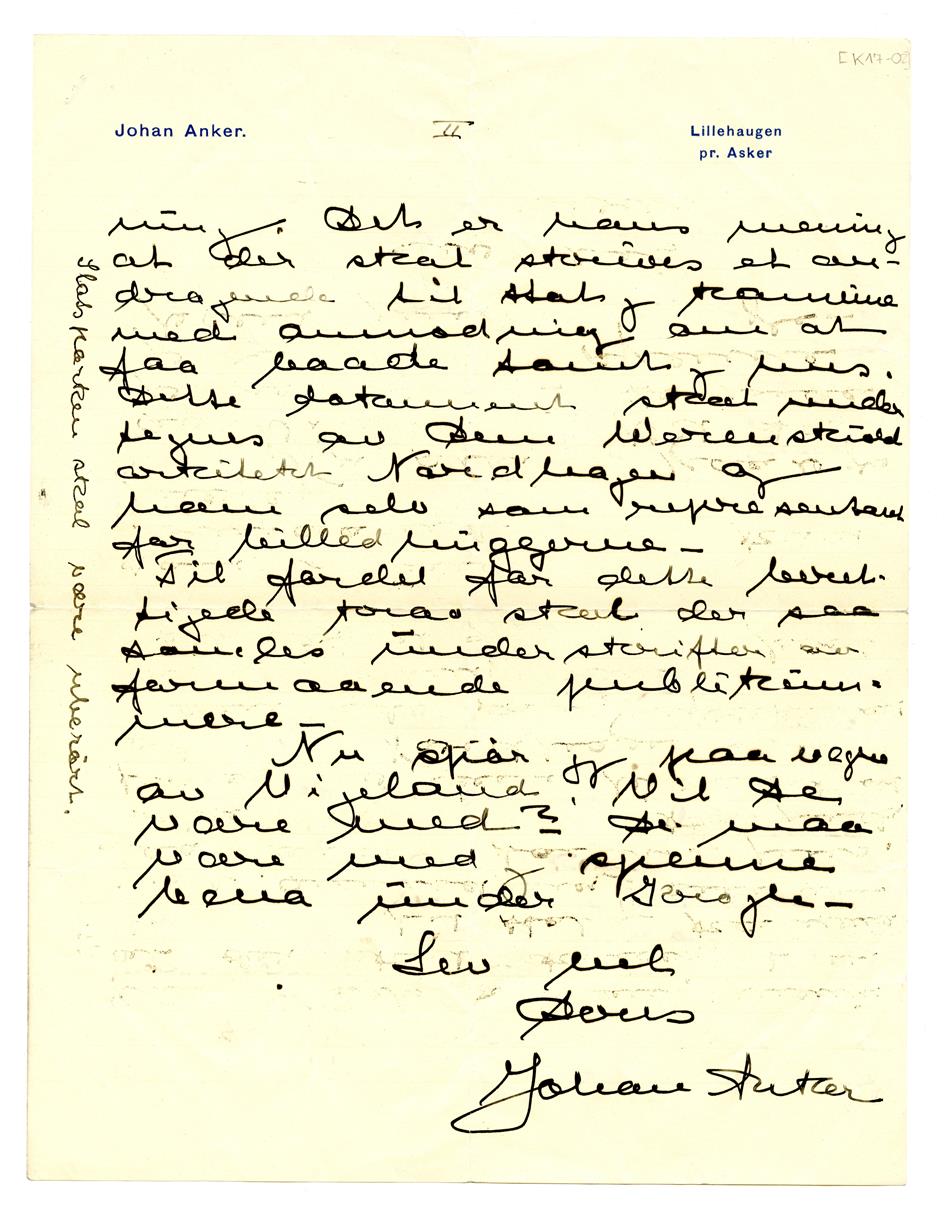 [K17-02]
Johan Anker.
II
Lillehaugen
pr. Asker
ning. Det er hans mening
at der skal skrives et an-
dragende til Stat og kommune
med anmodning om at
faa baade
Dette dokument skal under
tegnes av Dem Werenskiold
arkitekt Nordhagen og
ham selv som repræsentant
for billedhuggerne –
Til fordel for dette beret-
tigede krav skal der saa
samles underskrifter av
formaaende publikum-
mere –
Nu spør jeg paa vegne
av Vigeland. Vil De
være med? De maa
være med spenne
bena under –
Lev vel
Deres
Johan Anker
Slotsparken skal være uberørt.